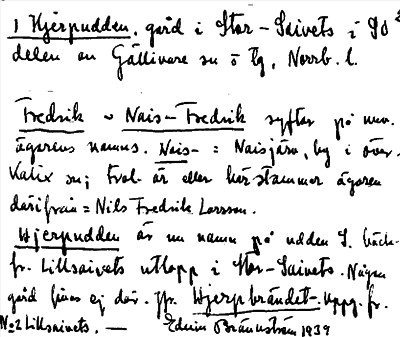 1 Hjerpudden, gård i Stor-Saivets i SO
delen av Gällivare sn o lg, Norrb. l.
Fredrik ~ Nais-Fredrik syftar på nuv.
ägarens namn. Nais- = Naisjärv, by i Över-
Kalix sn; trol. är eller härstammar ägaren
därifrån = Nils Fredrik Larsson.
Hjerpudden är nu namn på udden S. bäck-
fr. Lillsaivets utlopp i Stor-Saivets. Någon
gård finns ej där. Jfr. Hjerpbrändet. Uppg. fr.
No 2 Lillsaivets. — Edvin Brännström 1939